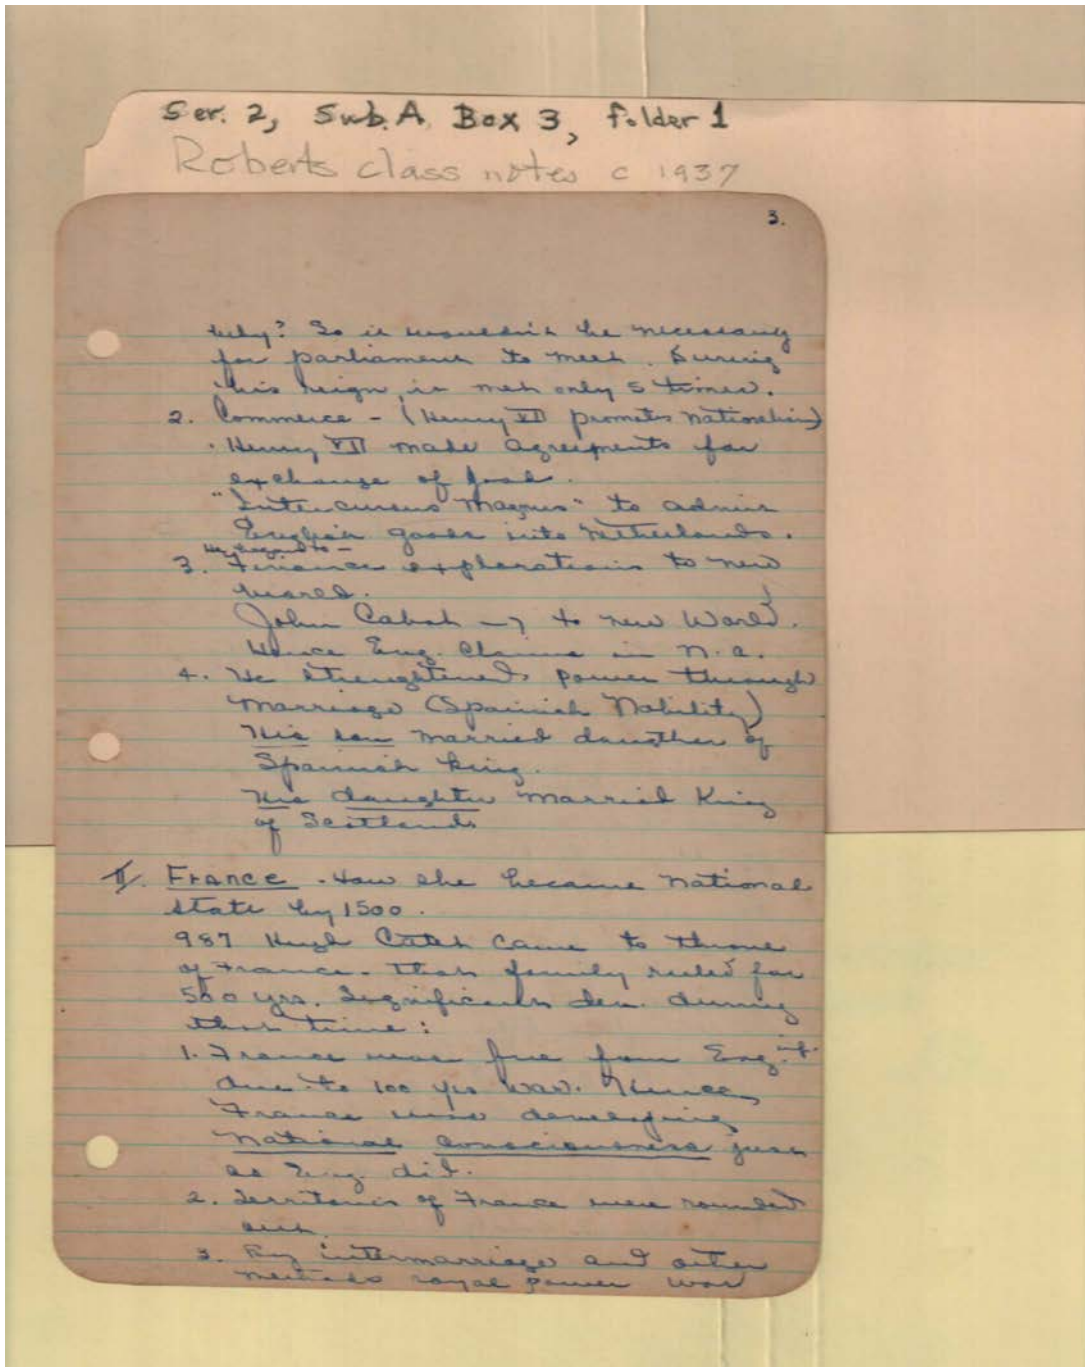 Ser. 2, Sub. A, Box 3, folder 1
Roberts class notes c 1937
3.
Why? So it wouldn't be necessary
for parliament to meet. During
his reign, it met only 5 times.
2. Commerce - (Henry VII promotes nationalism)
Henry VII made agreements for
exchange of
"Intercursus Magnus" to admit
English goods into Netherlands.
He began to -
3. Finance explorations to new
world.
John Cabot → to new World.
Hence Eng. Claims in N.A.
4. He strengthened power through
Marriage (Spanish Nobility)
His son married daughter of
Spanish King.
His daughter married King
of Scotland
II. France. How she became national
state by 1500.
987 Hugh Capet came to throne
of France. That family ruled for
500 yrs. Significant dev. during
that time:
1. France was free from Eng. inf.
due to 100 yrs War. Hence,
France was developing
national consciousness just
as Eng. did.
2. Territories of France were rounded
out.
3. By intermarriage and other
methods royal power was